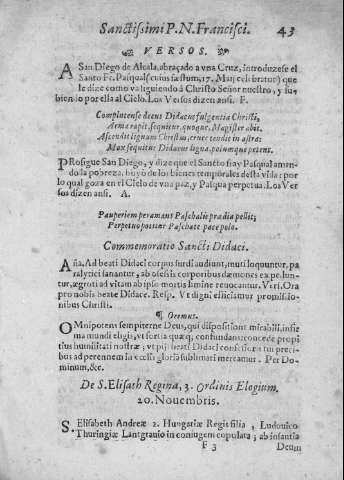 Sanctissimi P. N. Francisci. 43
VERSOS.
A San Diego de Alcala, abraçado a vna Cruz, introduzese el
Santo Fr. Pasqual (cuius festum, 17. Maij celebratur) que
le dize como va siguiendo à Christo Señor nuestro, y su-
biendo por ella al Cielo. Los Versos dizen ansi. F.
Complutense decus Didacus fulgentia Christi,
Arma rapit, sequitur quoque Magister abit.
Ascendit lignum Christus, cruce tendit in astra:
Mox sequitur Didacus ligna, polumque petens.
PRosigue San Diego, y dize que el Santo fray Pasqual aman-
do la pobreza, huyò de los bienes temporales desta vida: por
lo qual goza en el Cielo de vna paz, y Pasqua perpetua. Los Ver
sos dizen ansi. A.
Pauperiem peramans Paschalis prædia pellit;
Perpetuo potitur Paschate pace polo.
Commemoratio Sancti Didaci.
Aña. Ad beati Didaci corpus surdi audiunt, muti loquuntur, pa
ralytici sanantur, ab obsesis corporibus dæmones expellun-
tur, ægroti ad vitam ab ipso mortis limine reuocantur. Vers. Ora
pro nobis beate Didace. Resp. Vt digni efficiamur promissio-
nibus Christi.
¶ Oremus.
OMnipotens sempiterne Deus, qui dispositione mirabili, infir
ma mundi eligis, vt fortia quæq; confundas: concede propi
tius humilitati nostræ, vt pijs beati Didaci confessoris tui preci-
bus ad perennem in cœlis gloriã sublimari mereamur. Per Do-
minum, &c.
De S. Elisath Regina, 3. Ordinis Elogium.
20. Nouembris.
S. Elisabeth Andreæ 2. Hungariæ Regis filia, Ludouico
Thuringiæ Lantgrauio in coniugem copulata; ab infantia
F 3 Deum